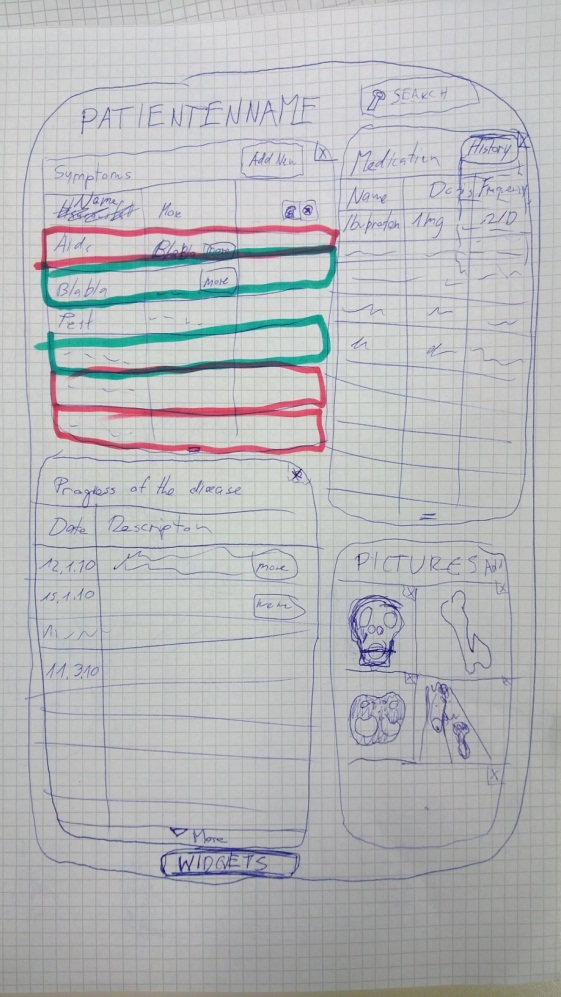 PATIENTENNAME
SEARCH
Symptoms
Add New
X
Name
More
Aids
Blabla
more
Blabla
More
Pest
Medication
History
X
Name
Dosis
Frequency
Ibuprofen
1mg
2/D
Progress of the disease
X
Date
Description
12.1.10
more
15.1.10
more
11.3.10
More
PICTURES
Add
X
X
X
X
X
WIDGETS